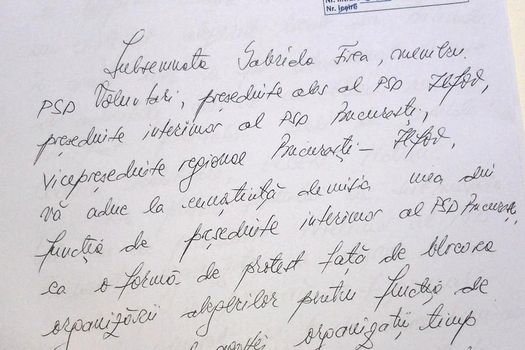 Nr. ieșire
Subsemnata Gabriela Firea, membru
PSD Voluntari, președinte ales al PSD Ilfov,
președinte interimar al PSD București,
vicepreședinte regiune București – Ilfov,
vă aduc la cunoștință demisia mea din
funcția de președinte interimar al PSD București,
ca o formă de protest față de blocarea
organizării alegerilor pentru funcția de
organizații timp